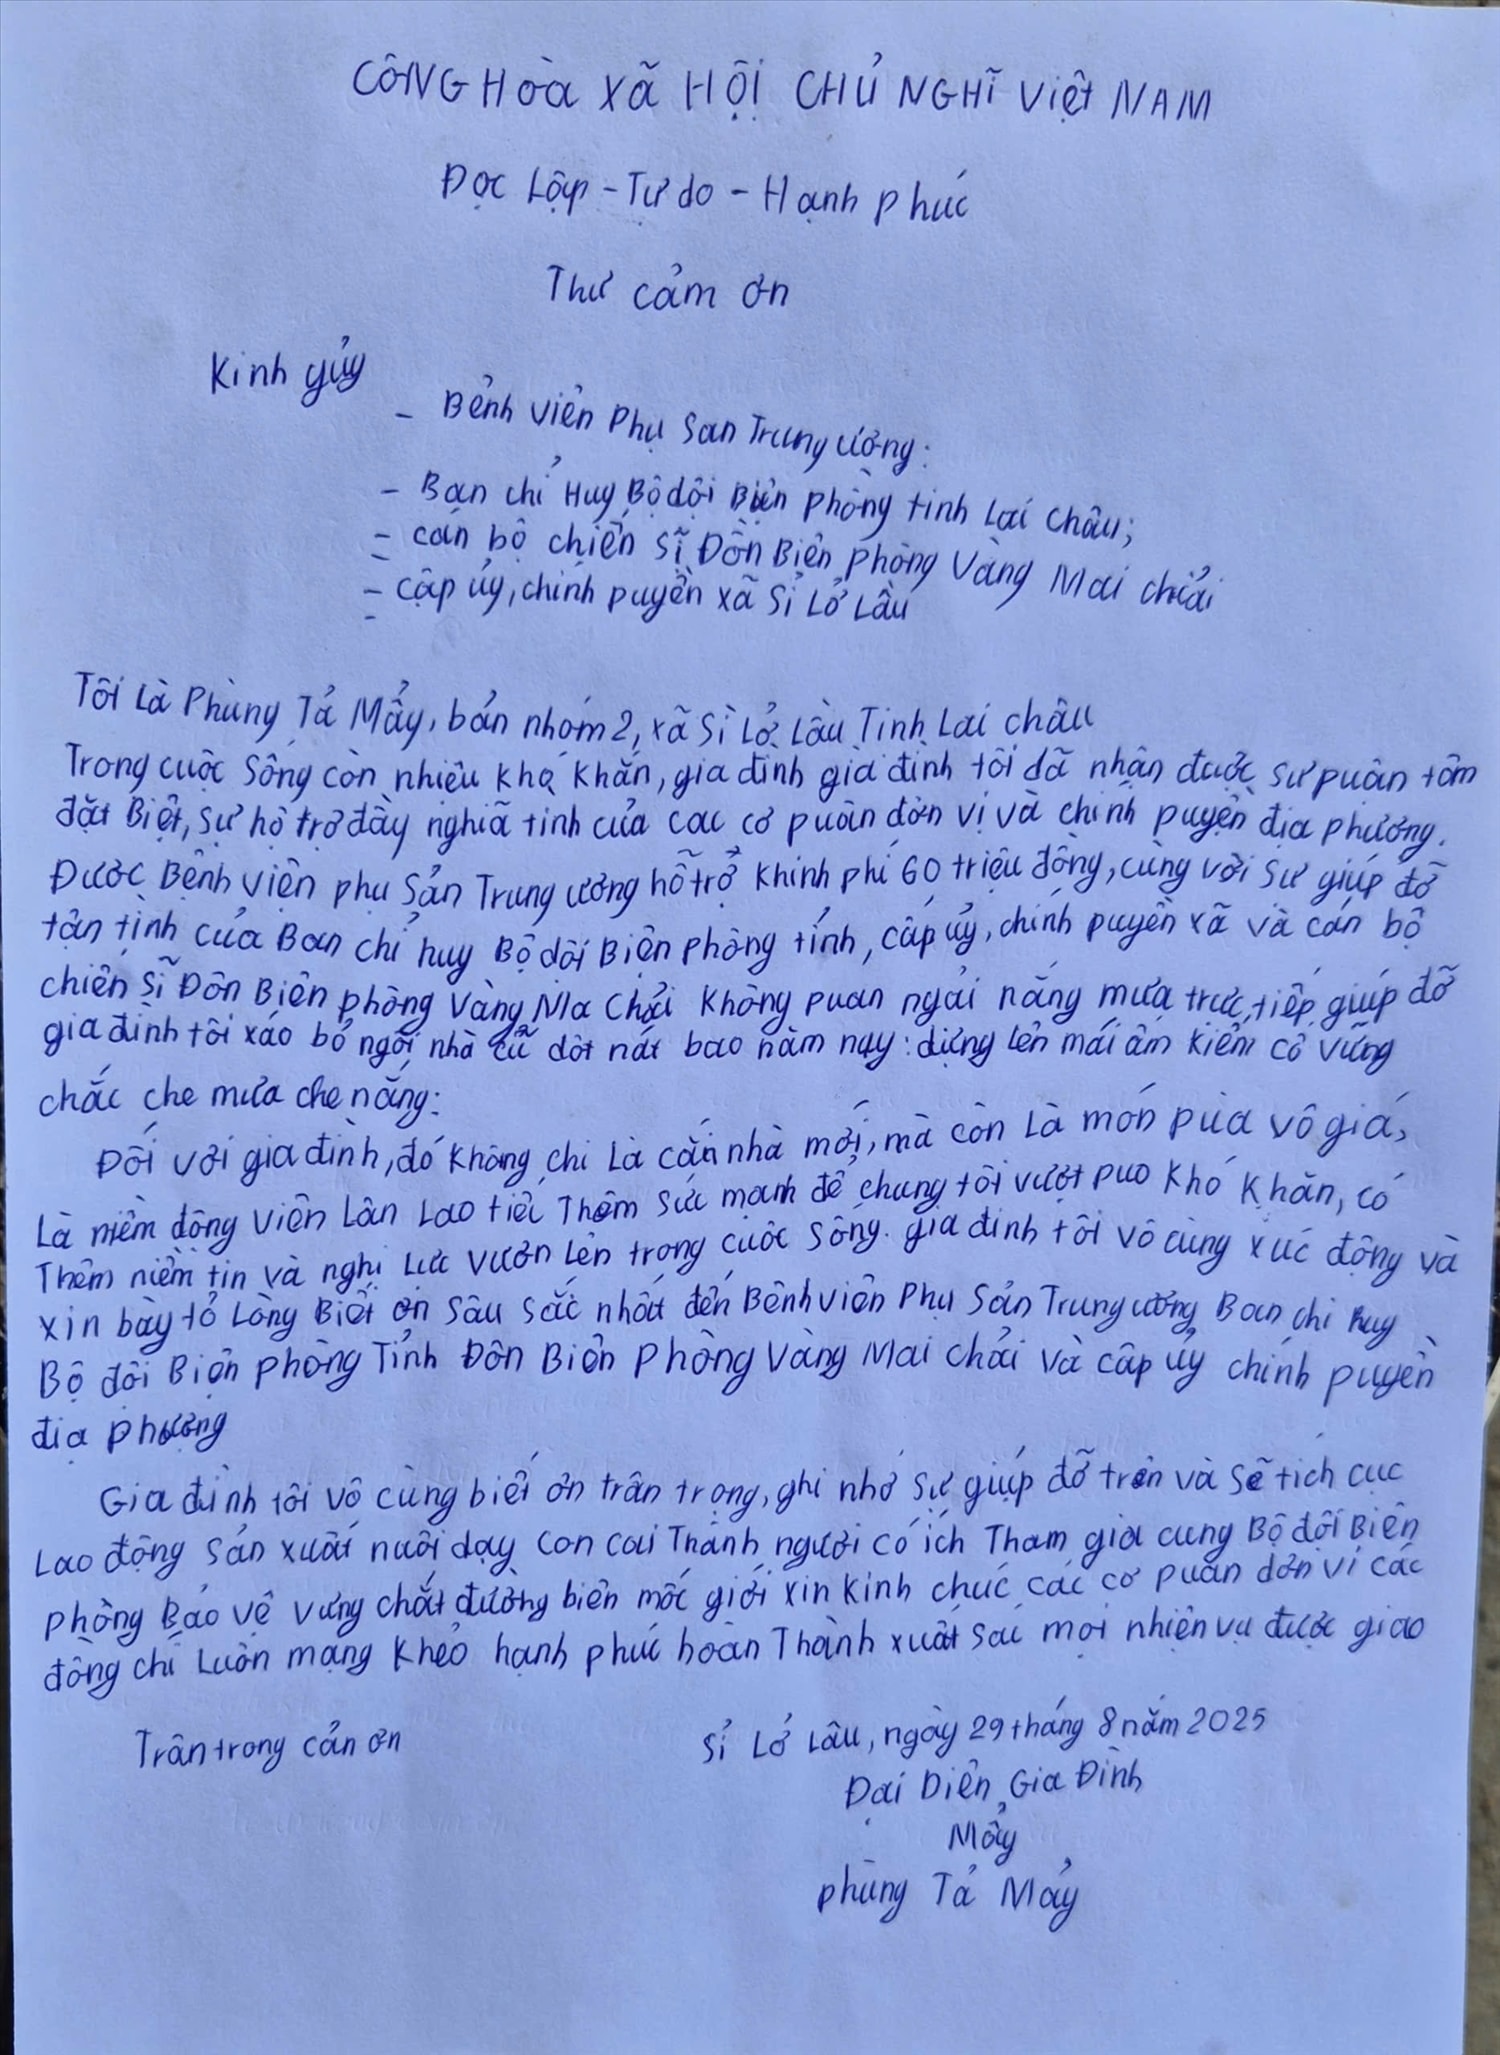 CÔNG HÒA XÃ HỘI CHỦ NGHĨ Việt NAM
Đọc Lập - Tự do - Hạnh phúc
Thư cảm ơn
Kinh gủy
- Bẻnh viẻn Phụ San Trung ương:
- Ban chỉ Huy Bộ dội Biên phòng tỉnh Lai châu;
- cán bộ chiến sĩ Đồn Biên phòng Vàng Mai chải
- cập ủy, chính puyền xã Sì Lở Lầu
Tôi Là Phùng Tả Mẩy, bản nhóm 2, xã Sì Lở Lầu Tinh Lai châu
Trong cuộc Sống còn nhiều khó khăn, gia đình gia đình tôi dã nhận được sự puân tôm
đặt Biệt, sự hộ trợ đầy nghiã tình của cac cơ puân đơn vị và chính puyền địa phương.
Được Bệnh viện phụ Sản Trung ương hỗ trở khinh phí 60 triệu đồng, cùng với sự giúp đỡ
tận tình của Ban chỉ huy Bộ dối Biên phòng tỉnh, cấp ủy, chính puyền xã và cán bộ
chiến sĩ Đồn Biên phòng Vàng Ma Chải không puan ngải nắng mưa trực tiếp giúp đỡ
gia đình tôi xáo bỏ ngôi nhà cũ dột nát bao năm nay: dựng lên mái ấm kiểm cố vững
chắc che mưa che nắng:
Đối với gia đình, đó không chỉ Là căn nhà mới, mà còn Là món pùa vô giá,
Là niềm động viên Lân Lao tiếi Thêm sức mạnh để chung tôi vượt puo khó khăn, có
Thêm niềm tin và nghị Lực vươn Lên trong cuộc Sống. gia đình tôi vô cùng xúc động và
xin bày tỏ Lòng Biết ơn Sâu Sắc nhất đến Bênh viện Phụ Sản Trung ương Ban chỉ huy
Bộ đội Biên phòng Tỉnh Đồn Biên Phòng Vàng Mai chải Và cấp ủy chính puyền
địa phương
Gia đình tôi vô cùng biết ơn trân trọng, ghi nhớ Sự giúp đỡ trên và Sẽ tích cực
Lao động Sản xuất nuôi dạy con cai Thành người có ích Tham gia cung Bộ đội Biên
phòng Bảo vệ vưng chắt đường biên mốc giới xin kinh chúc các cơ puân đơn vi các
đồng chí Luôn mạng khẻo hạnh phúc hoàn Thành xuất sắc mọi nhiện vụ được giao
Trân trong cản ơn
Sỉ Lở Lâu, ngày 29 tháng 8 năm 2025
Đại Diện Gia Đình
Mẩy
phùng Tả Mẩy